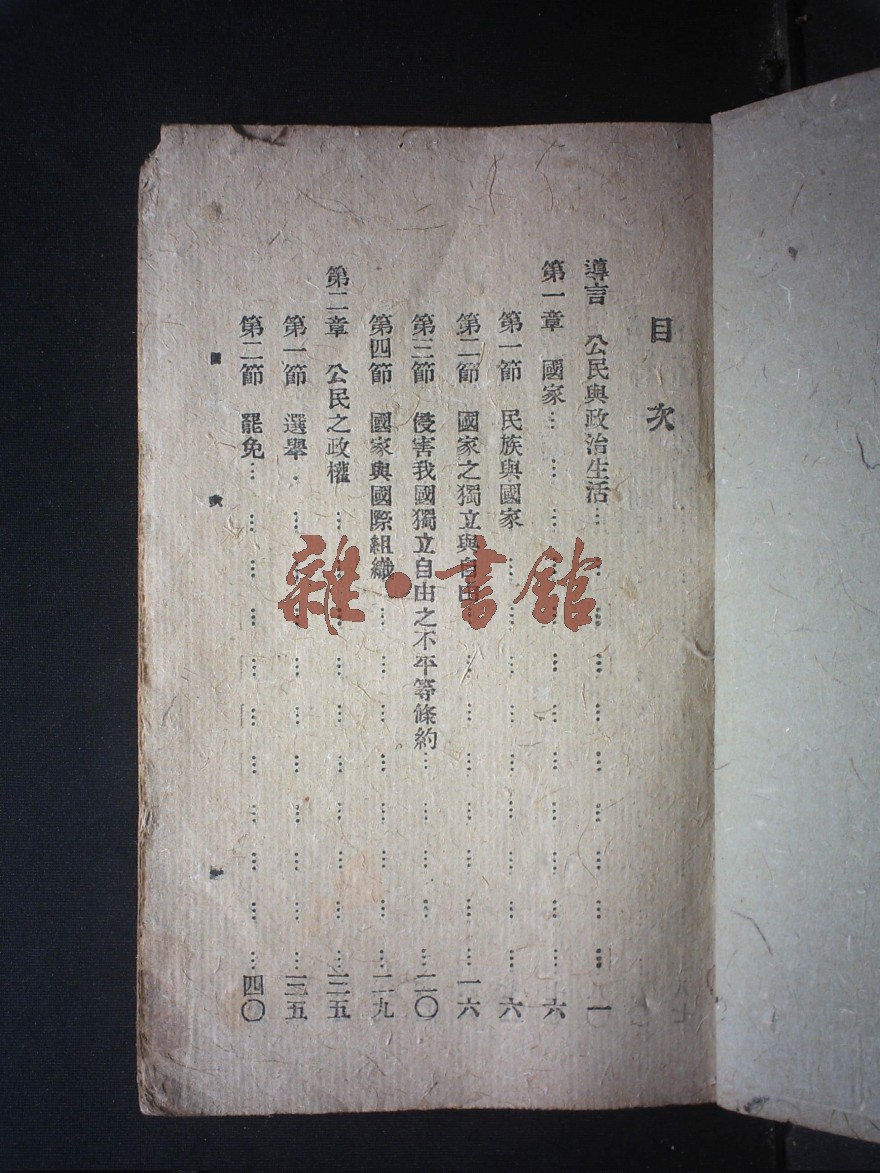 目次
導言 公民與政治生活……一
第一章 國家……六
第一節 民族與國家……六
第二節 國家之獨立與自由……一六
第三節 侵害我國獨立自由之不平等條約……二〇
第四節 國家與國際組織……二九
第二章 公民之政權……三五
第一節 選舉……三五
第二節 罷免……四〇
目 次 一
雜·書館